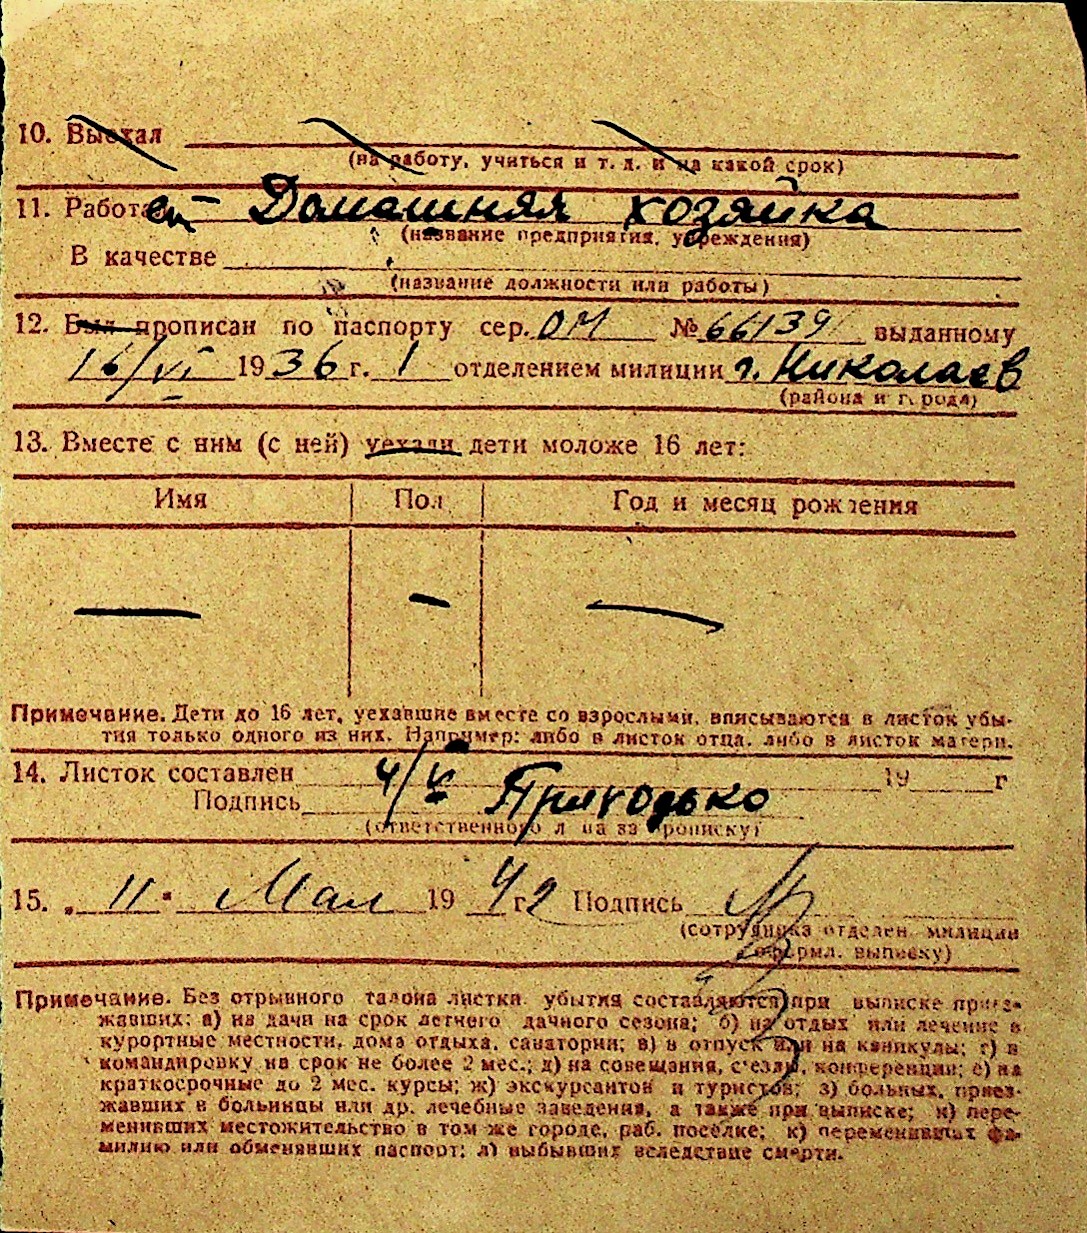 10. Выехал
(на работу, учиться и т. д. и на какой срок)
11. Работает - Домашняя хозяйка
(название предприятия, учреждения)
В качестве
(название должности или работы)
12. Был прописан по паспорту сер. ОМ № 66139 выданному
16/VI 1936 г. 1 отделением милиции г. Николаев
(района и города)
13. Вместе с ним (с ней) уехали дети моложе 16 лет:
Имя Пол Год и месяц рождения
— — —
Примечание. Дети до 16 лет, уехавшие вместе со взрослыми, вписываются в листок убы-
тия только одного из них. Например: либо в листок отца, либо в листок матери.
14. Листок составлен 4/V 19 г
Подпись Приходько
(ответственного лица за прописку)
15. „ 11 " Мая 1942 г. Подпись
(сотрудника отделен. милиции
оформл. выписку)
Примечание. Без отрывного талона листки убытия составляются при выписке приез-
жавших: а) на дачи на срок летнего дачного сезона; б) на отдых или лечение в
курортные местности, дома отдыха, санатории; в) в отпуск или на каникулы; г) в
командировку на срок не более 2 мес.; д) на совещания, съезды, конференции; е) на
краткосрочные до 2 мес. курсы; ж) экскурсантов и туристов; з) больных, приез-
жавших в больницы или др. лечебные заведения, а также при выписке; и) пере-
менивших местожительство в том же городе, раб. поселке; к) переменивших фа-
милию или обменявших паспорт; л) выбывших вследствие смерти.